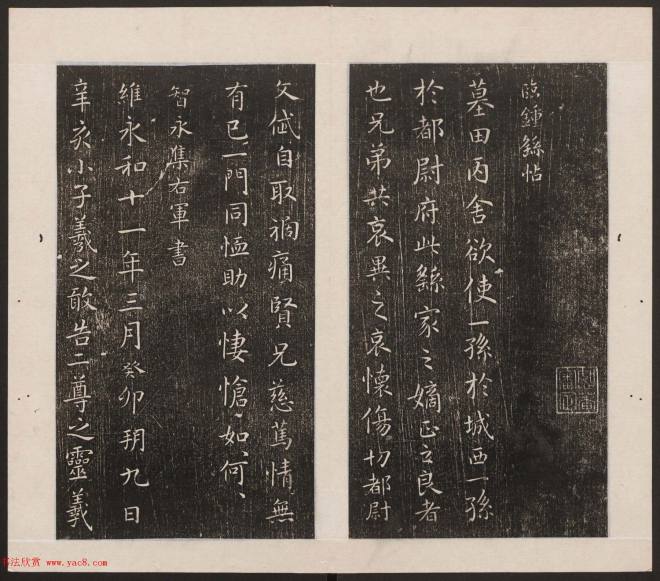 臨鍾繇帖
墓田丙舍欲使一孫於城西一孫
於都尉府此繇家之嫡正之良者
也兄弟共哀異之哀懷傷切都尉
文岱自取禍痛賢兄慈篤情無
有已一門同恤助以悽愴如何〻
智永集右軍書
維永和十一年三月癸卯朔九日
辛亥小子羲之敢告二尊之靈羲
书法欣赏 www.yac8.com